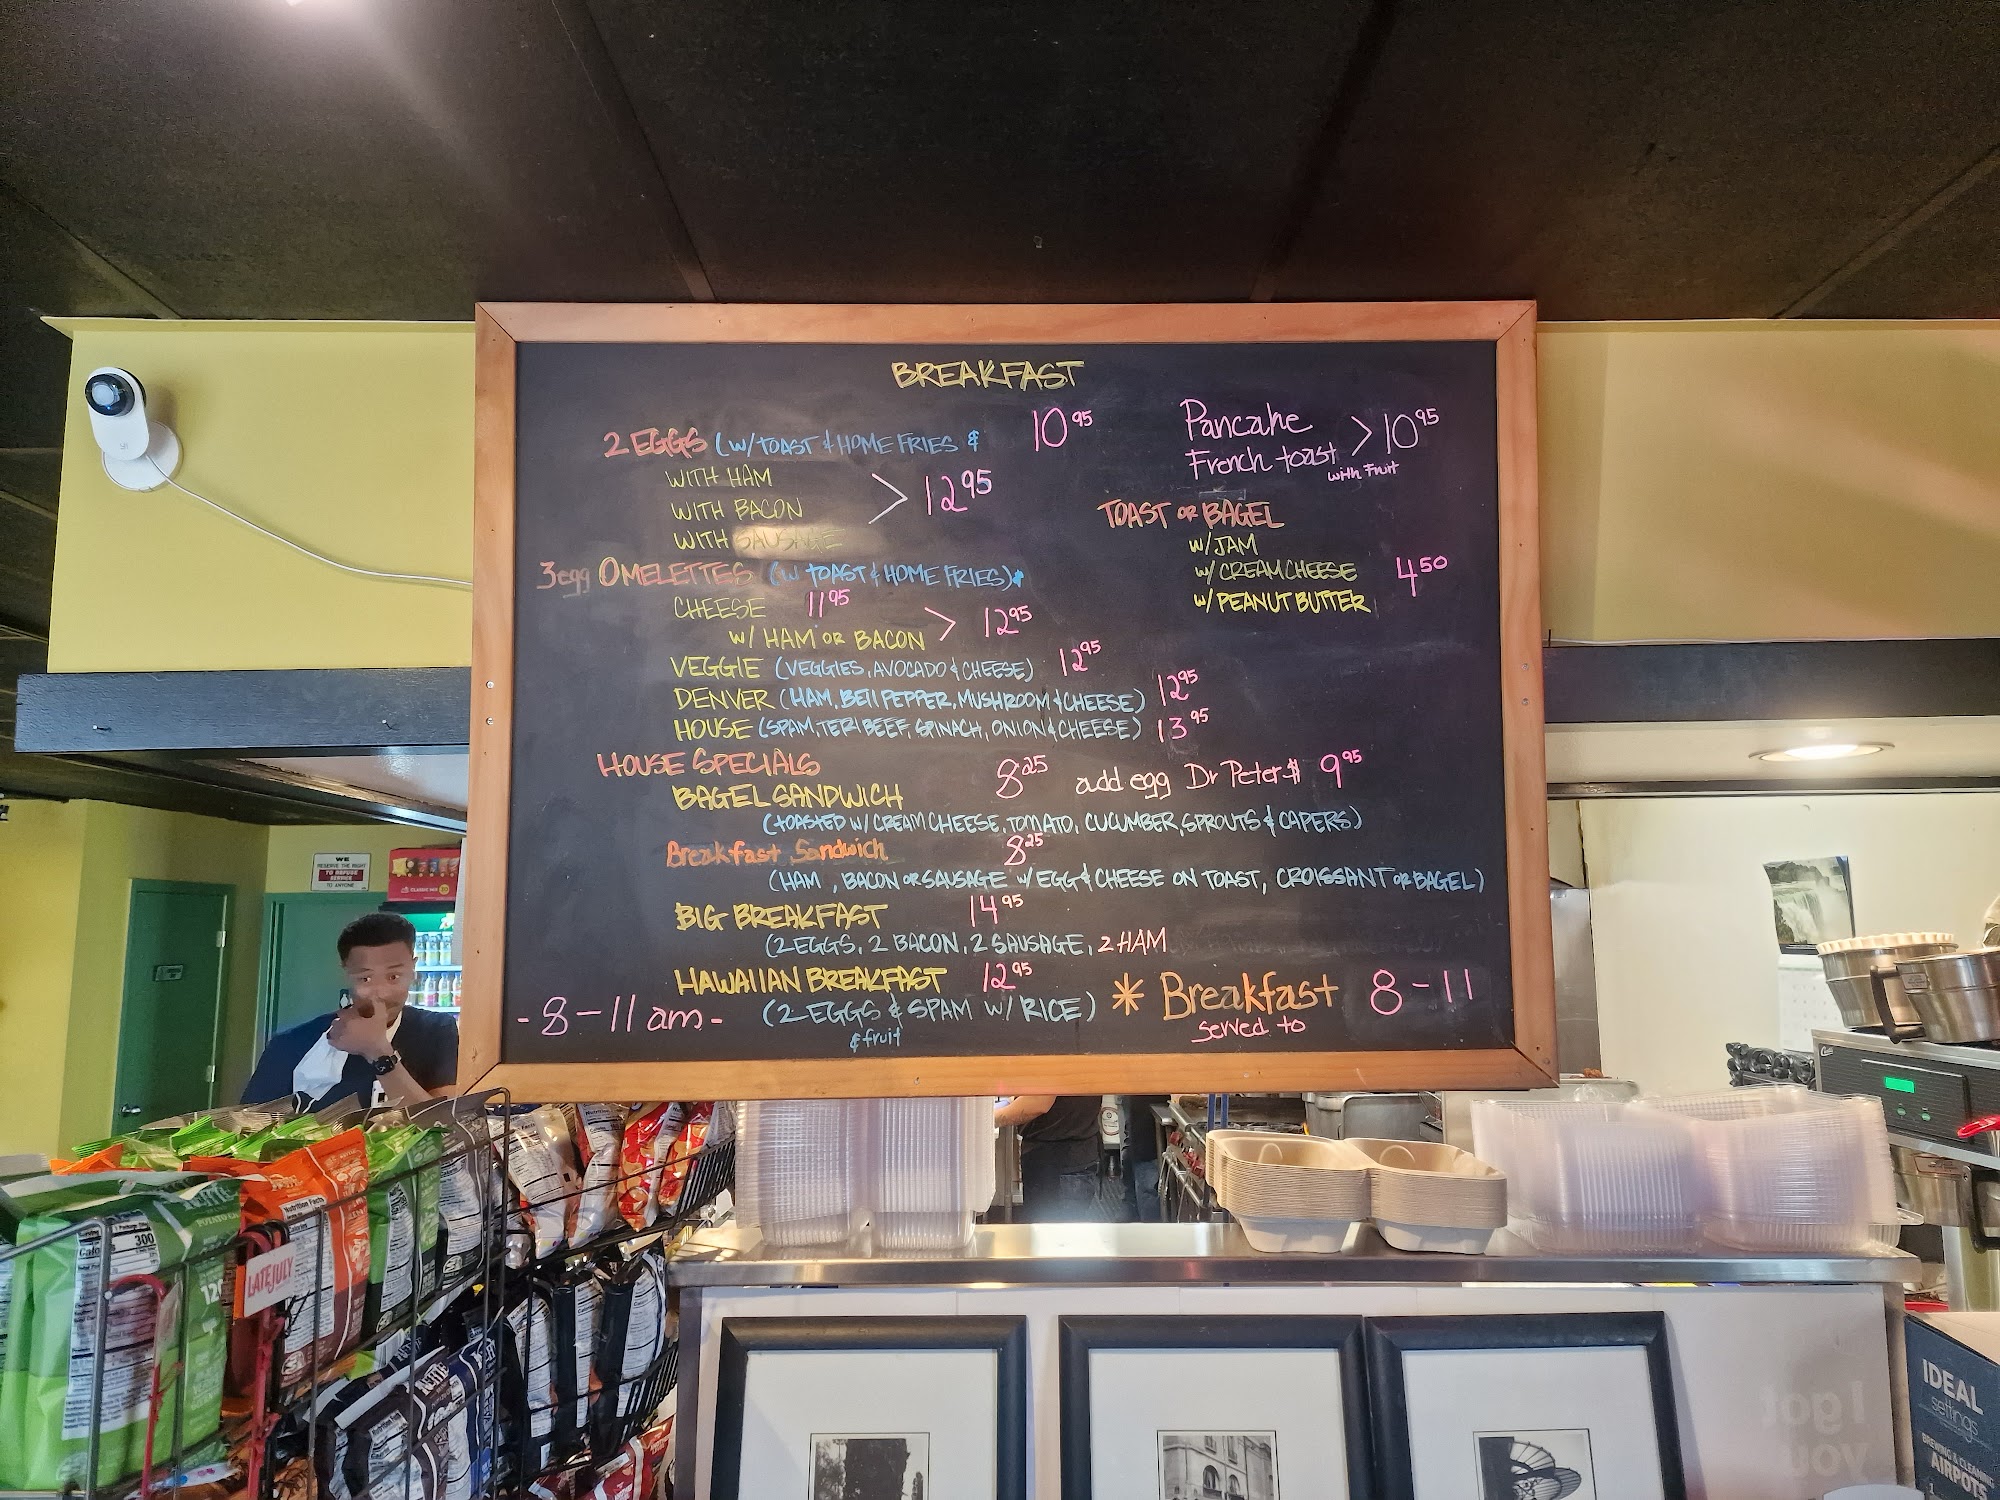 BREAKFAST
2 EGGS (W/TOAST & HOME FRIES & 10 95
WITH HAM
WITH BACON > 12 95
WITH SAUSAGE
3 egg OMELETTES (W TOAST & HOME FRIES)&
CHEESE 11 95
W/ HAM OR BACON > 12 95
VEGGIE (VEGGIES, AVOCADO & CHEESE) 12 95
DENVER (HAM, BELL PEPPER, MUSHROOM & CHEESE) 12 95
HOUSE (SPAM, TERI BEEF, SPINACH, ONION & CHEESE) 13 95
HOUSE SPECIALS
BAGEL SANDWICH 8 25 add egg Dr Peter $ 9 95
(TOASTED W/ CREAM CHEESE, TOMATO, CUCUMBER, SPROUTS & CAPERS)
Breakfast Sandwich 8 25
(HAM, BACON OR SAUSAGE W/ EGG & CHEESE ON TOAST, CROISSANT OR BAGEL)
BIG BREAKFAST 14 95
(2 EGGS, 2 BACON, 2 SAUSAGE, 2 HAM
HAWAIIAN BREAKFAST 12 95
(2 EGGS & SPAM W/ RICE)
& fruit
- 8-11 am -
Pancake
French toast > 10 95
with Fruit
TOAST OR BAGEL
W/ JAM
W/ CREAM CHEESE 4 50
W/ PEANUT BUTTER
* Breakfast 8-11
served to
WE
RESERVE THE RIGHT
TO REFUSE
SERVICE
TO ANYONE
CLASSIC MIX
Nutrition Facts
300
120
LATE JULY
KETTLE
POTATO
I got
you
IDEAL
settings
BREWING & CLEANING
AIRPOTS